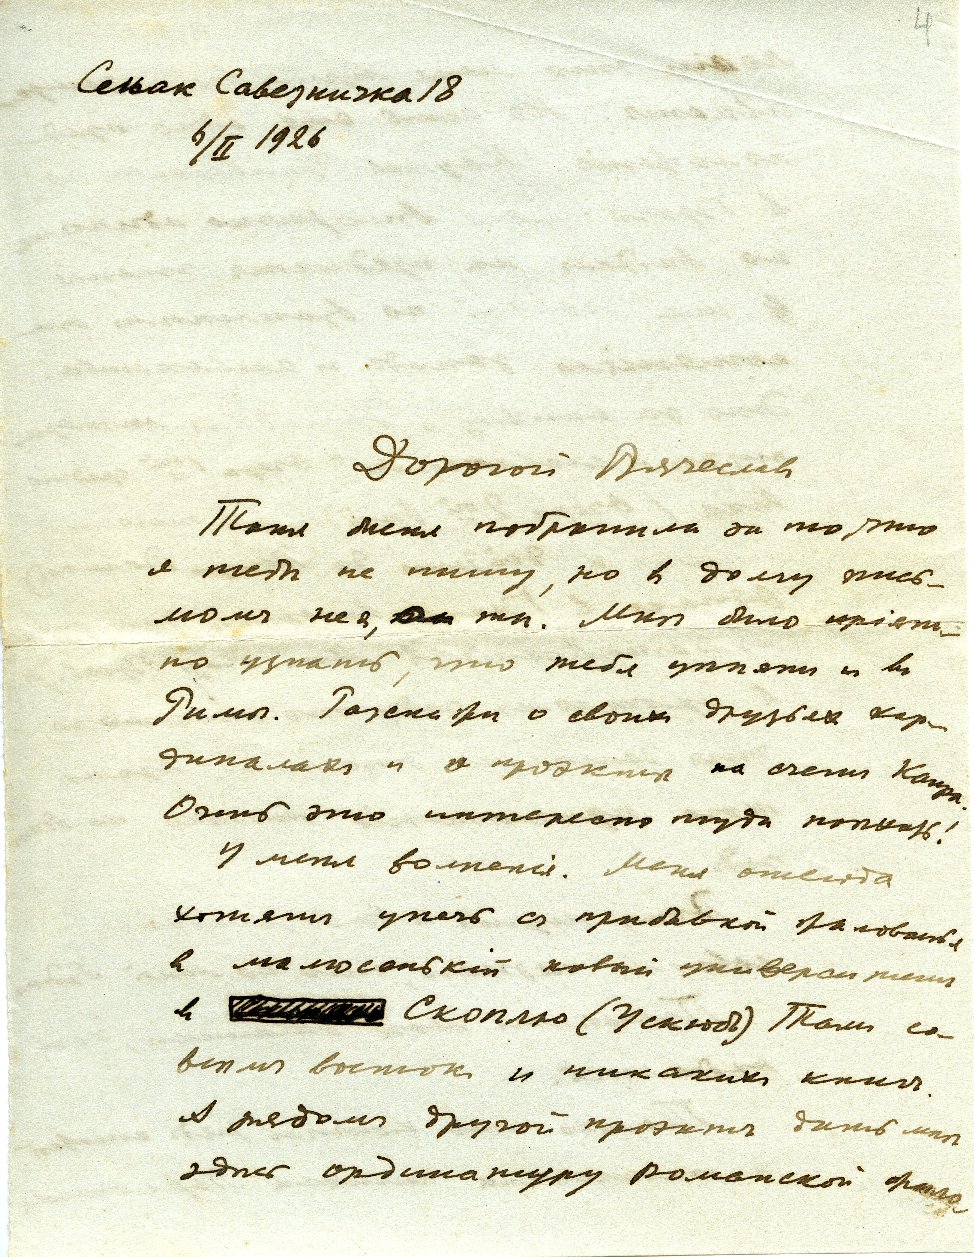 4
Сењак Савезничка 18
6/II 1926
Дорогой Вячеслав
Таня меня побранила за то, что
я тебѣ не пишу, но в долгу пись-
момъ не я, а ты. Мнѣ было пріят-
но узнать, что тебя цѣнят и въ
Римѣ. Разскажи о своих друзьях кар-
диналах и о проэктѣ на счетъ Каира.
Очень это интересно туда попасть!
У меня волненія. Меня отсюда
хотятъ упечь съ прибавкой жалованья
в малюсенькій новый университетъ
в Скоплю (Ускюбъ) Тамъ со-
всѣмъ восток и никаких книгъ.
А рядомъ другой проэктъ дать мнѣ
здѣсь ординатуру романской фило-